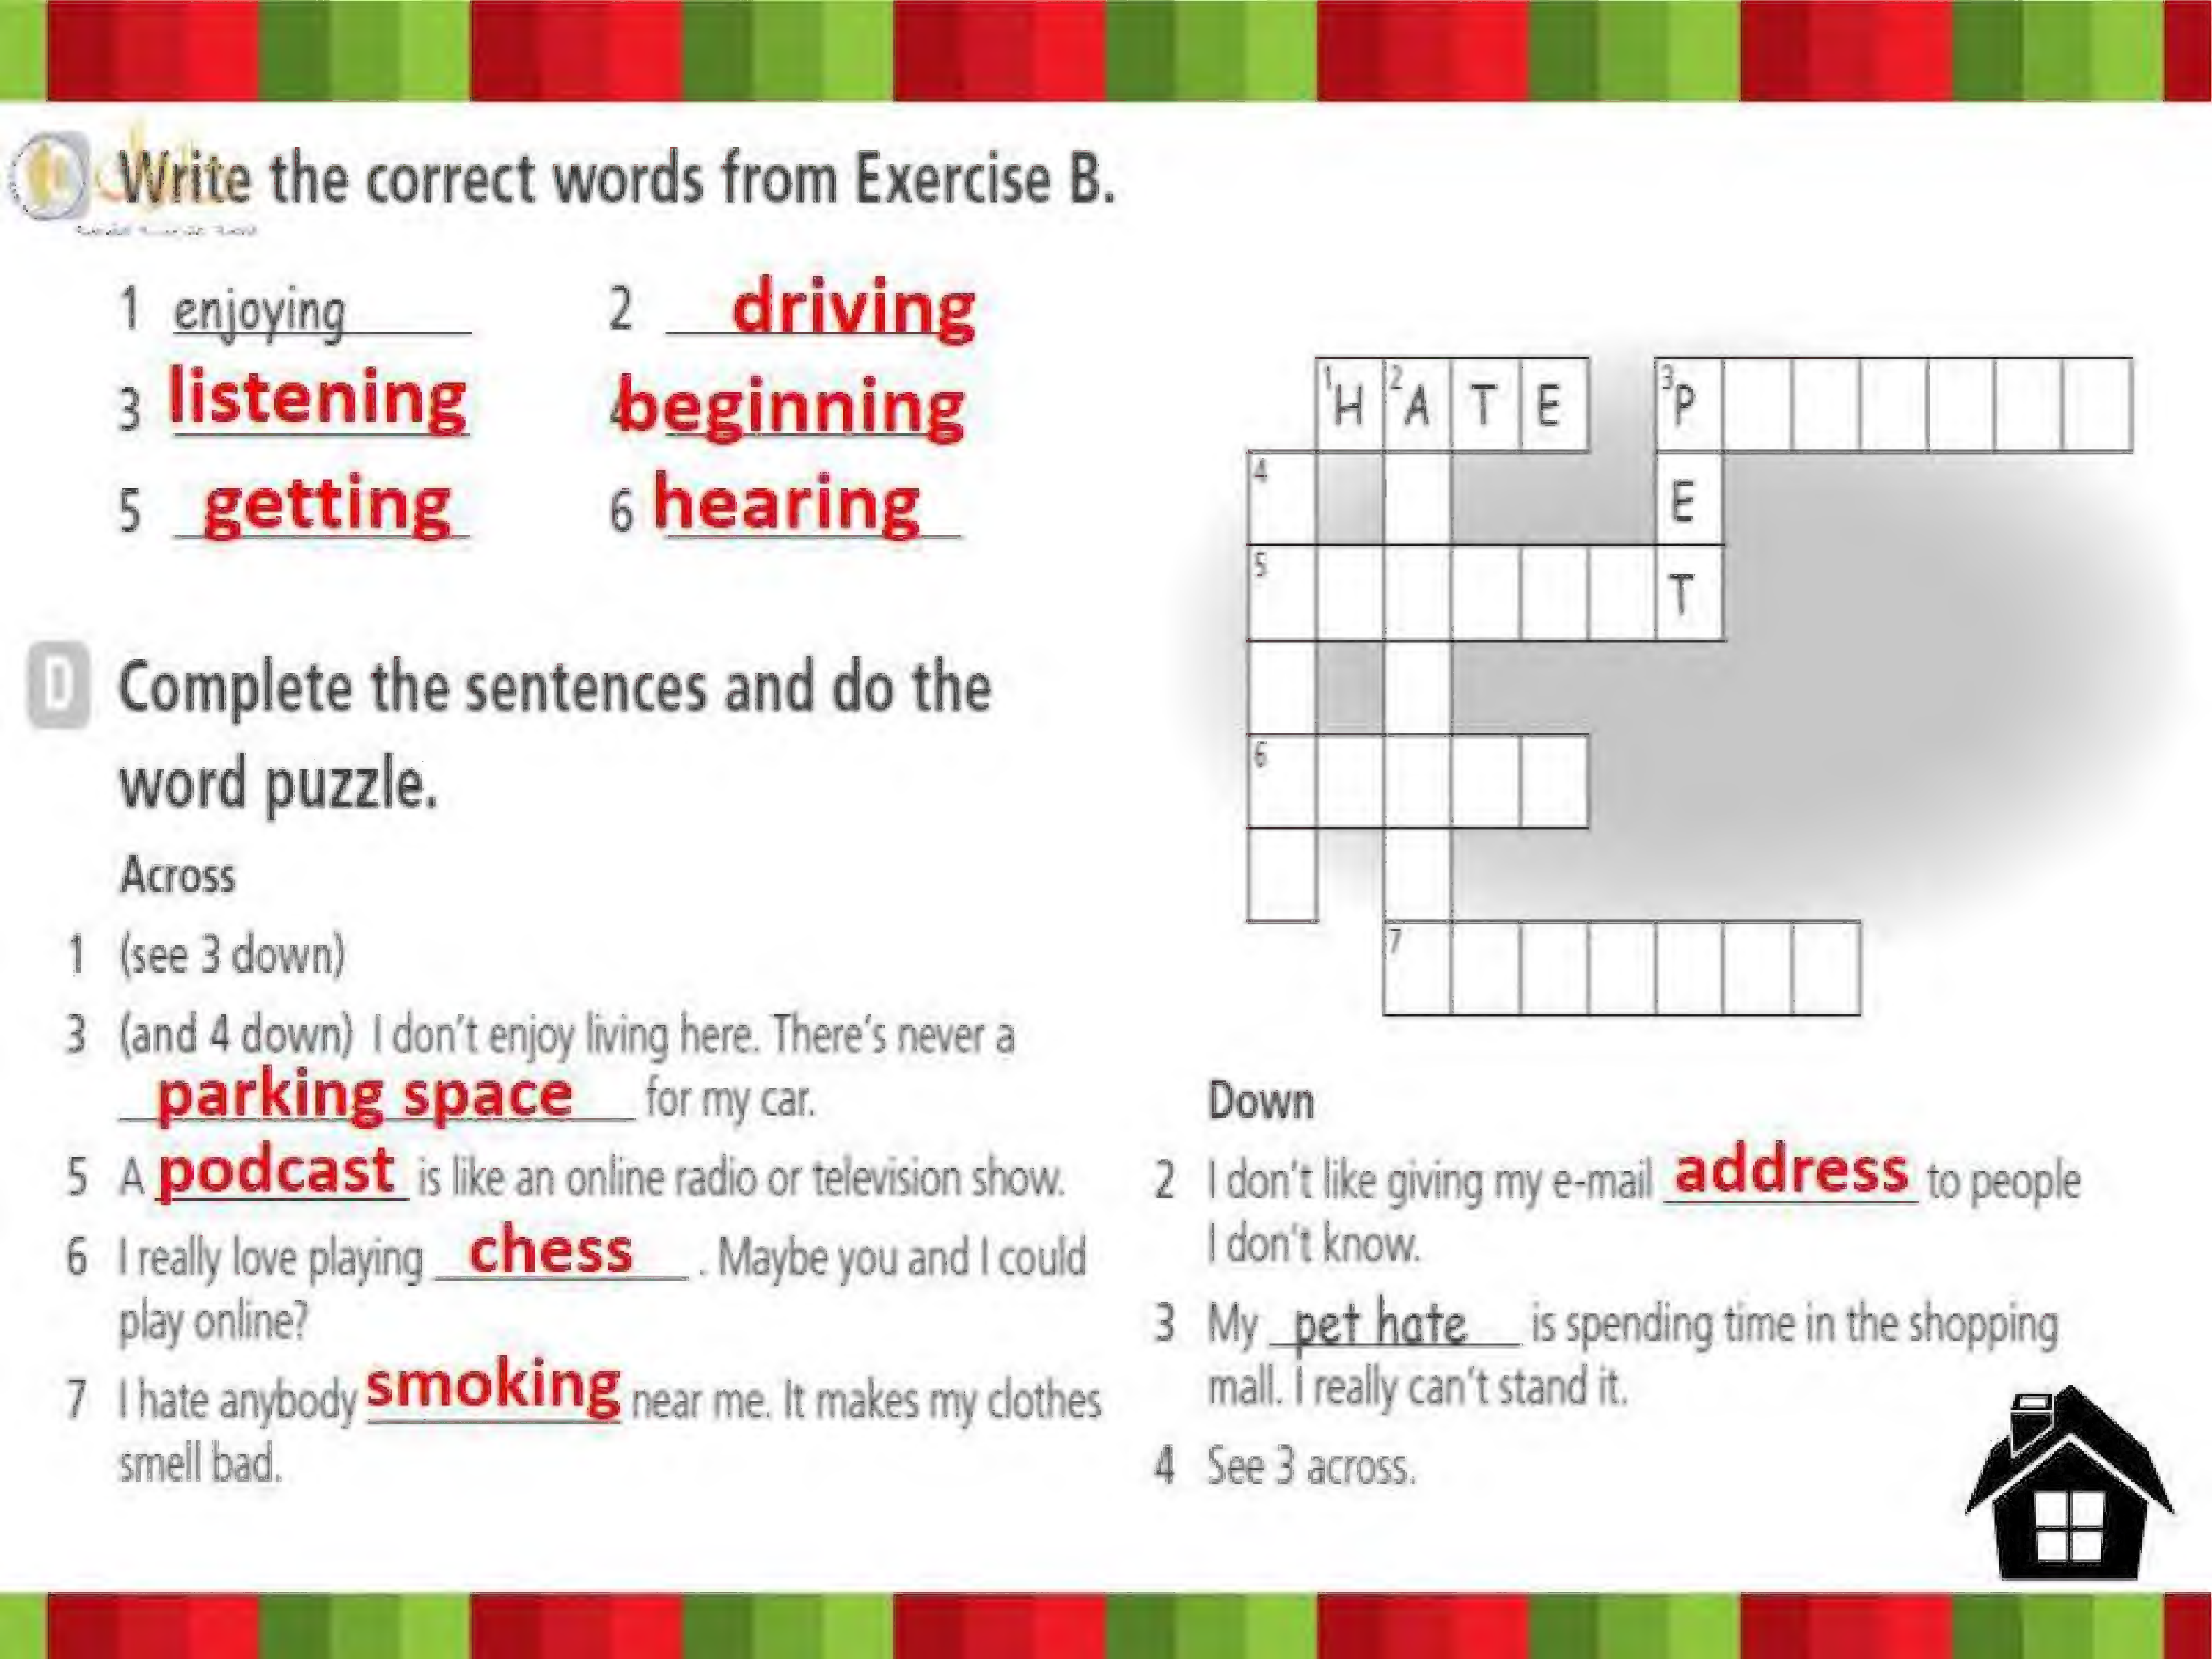 Write the correct words from Exercise B.
1 enjoying
2 driving
3 listening
4 beginning
5 getting
6 hearing
D Complete the sentences and do the
word puzzle.
Across
1 (see 3 down)
3 (and 4 down) I don't enjoy living here. There's never a
parking space for my car.
5 A podcast is like an online radio or television show.
6 I really love playing chess . Maybe you and I could
play online?
7 I hate anybody smoking near me. It makes my clothes
smell bad.
1 H 2 A T E 3 P
4 E
5 T
6
7
Down
2 I don't like giving my e-mail address to people
I don't know.
3 My pet hate is spending time in the shopping
mall. I really can't stand it.
4 See 3 across.